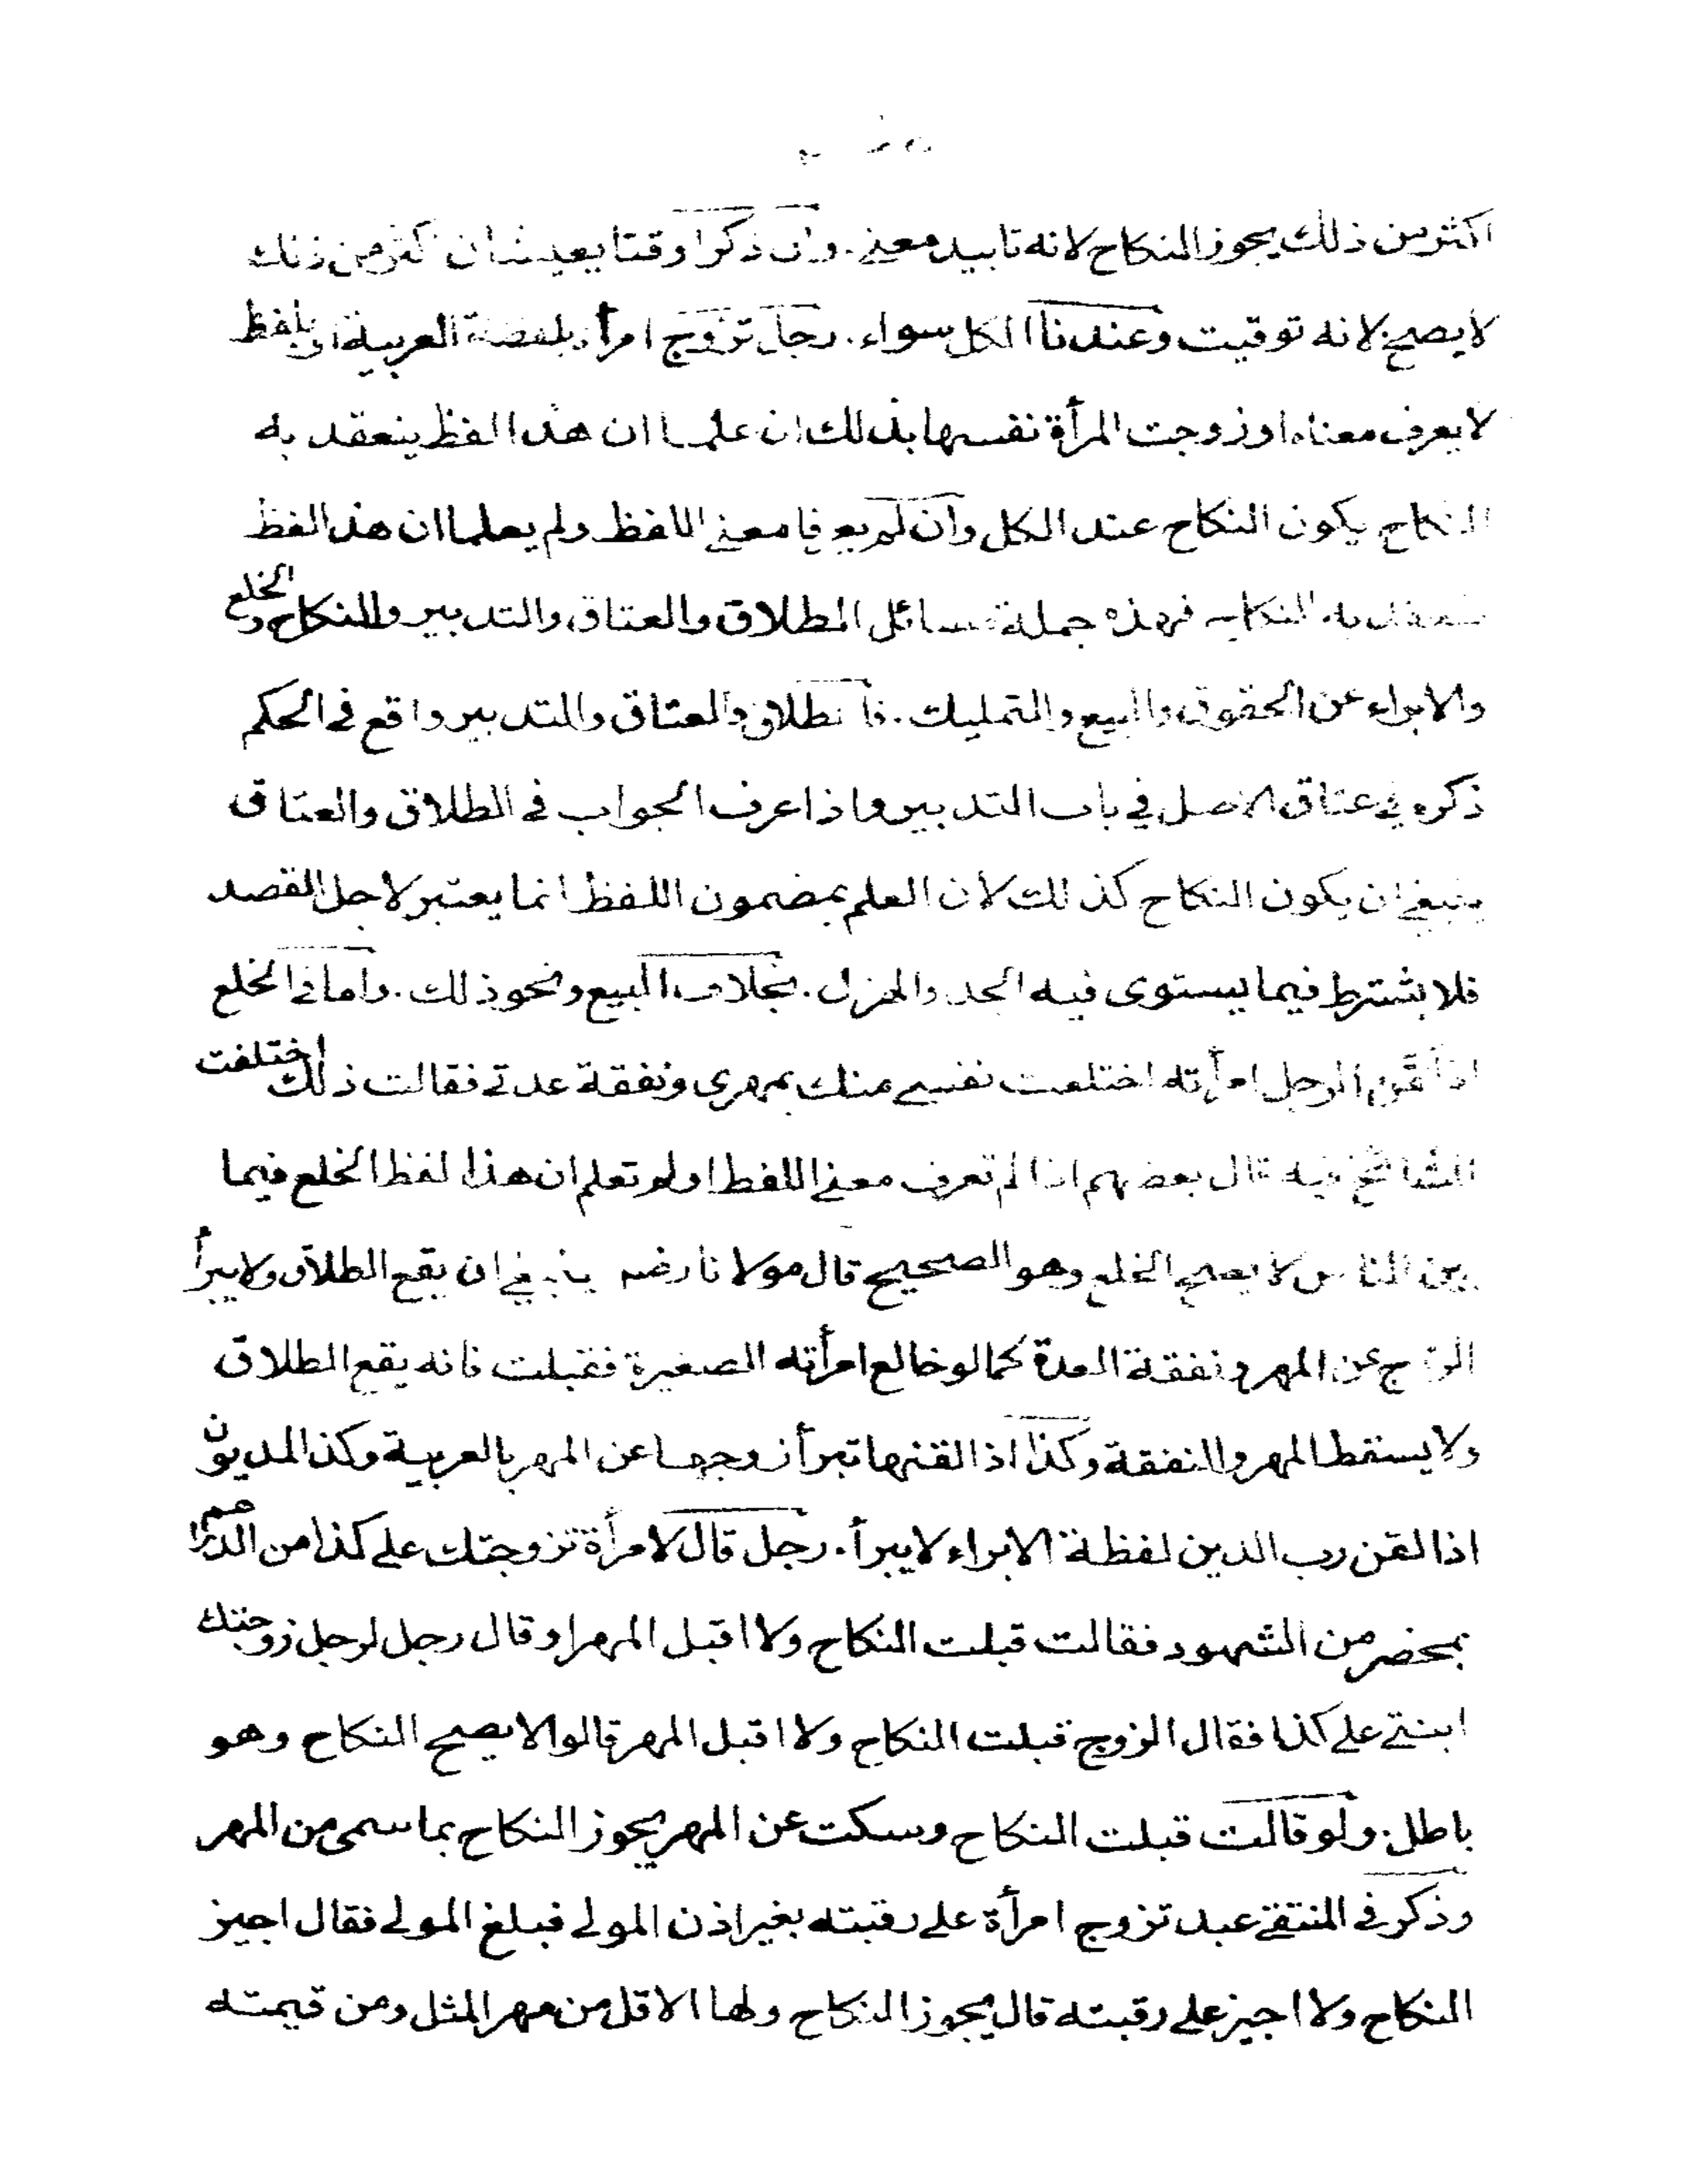 اكثر من ذلك يجوز النكاح لانه تابيد معنى. وان ذكرا وقتا يعيشان اكثر من ذلك
لا يصح لانه توقيت وعندنا الكل سواء. رجل تزوج امرأة بلفظة العربية او بلفظ
لا يعرف معناه او زوجت المرأة نفسها بذلك ان علما ان هذا الفظ ينعقد به
النكاح يكون النكاح عند الكل وان لم يعرفا معنى اللفظ ولم يعلما ان هذا لفظ
ينعقد به النكاح فهذه جملة مسائل الطلاق والعتاق والتدبير والنكاح والخلع
والابراء عن الحقوق والبيع والتمليك. فالطلاق والعتاق والتدبير واقع في الحكم
ذكره في عتاق الاصل في باب التدبير واذا عرف الجواب في الطلاق والعتاق
ينبغي ان يكون النكاح كذلك لان العلم بمضمون اللفظ انما يعتبر لاجل القصد
فلا يشترط فيما يستوى فيه الجد والهزل. بخلاف البيع ونحو ذلك. واما في الخلع
اذا لقن الرجل امرأته اختلعت نفسي منك بمهرى ونفقة عدتي فقالت ذلك اختلفت
المشائخ فيه قال بعضهم اذا لم تعرف معنى اللفظ اولم تعلم ان هذا لفظ الخلع فيما
بين الناس لا يصح الخلع وهو الصحيح قال مولانا رضه ينبغي ان يقع الطلاق ولا يبرأ
الزوج عن المهر ونفقة العدة كما لو خالع امرأته الصغيرة فقبلت فانه يقع الطلاق
ولا يسقط المهر والنفقة وكذا اذا لقنها تبرأ زوجها عن المهر بالعربية وكذا المديون
اذا لقن رب الدين لفظة الابراء لا يبرأ. رجل قال لامرأة تزوجتك على كذا من الدراهم
بمحضر من الشهود فقالت قبلت النكاح ولا اقبل المهر او قال رجل لرجل زوجتك
ابنتي على كذا فقال الزوج قبلت النكاح ولا اقبل المهر قالوا لا يصح النكاح وهو
باطل. ولو قالت قبلت النكاح وسكت عن المهر يجوز النكاح بما سمى من المهر
وذكر في المنتقى عبد تزوج امرأة على رقبته بغير اذن المولى فبلغ المولى فقال اجيز
النكاح ولا اجيز على رقبته قال يجوز النكاح ولها الاقل من مهر المثل ومن قيمته